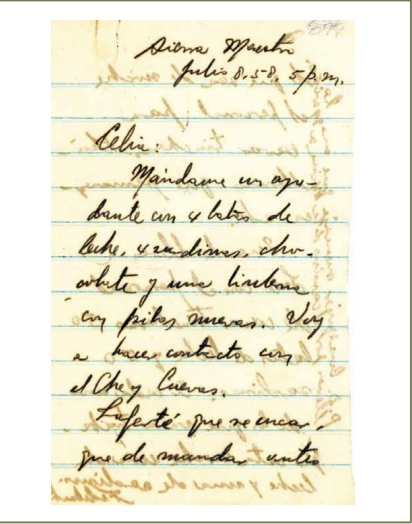 Sierra Maestra
Julio 8, 58, 5 p.m.
Celia:
Mándame un ayu-
dante con 4 latas de
leche, 4 sardinas, cho-
colate y una linterna
con pilas nuevas. Voy
a hacer contacto con
el Che y Cuevas.
Laferté que se encar-
gue de mandar antes